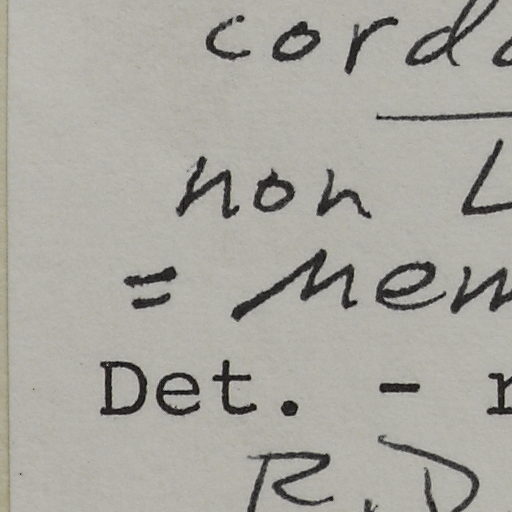 cord
non L
= Mem
Det. - r
R.D